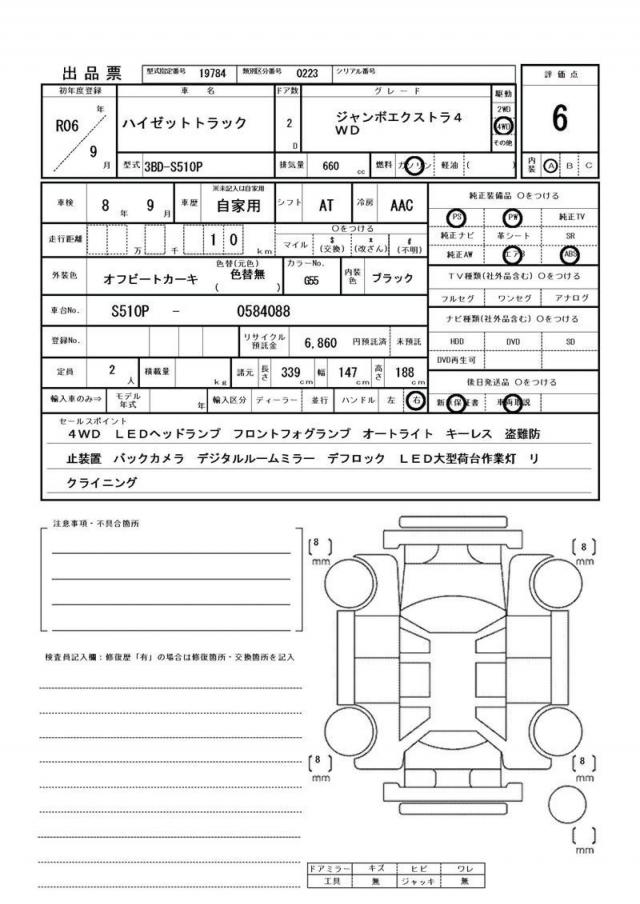 出品票 型式指定番号 19784 類別区分番号 0223 シリアル番号
初年度登録 車名 ドア数 グレード 駆動 評価点
R06 年 9 月 ハイゼットトラック 2 D ジャンボエクストラ4WD 2WD 4WD その他 6
型式 3BD-S510P 排気量 660 cc 燃料 ガソリン 軽油 ( ) 内装 A B C
車検 8 年 9 月 車歴 ※未記入は自家用 自家用 シフト AT 冷房 AAC 純正装備品 Oをつける
PS PW 純正TV
走行距離 万 千 1 0 km Oをつける マイル $(交換) x(改ざん) #(不明) 純正ナビ 革シート SR
純正AW エアB ABS
外装色 オフビートカーキ 色替(元色) 色替無 ( ) カラーNo. G55 内装色 ブラック TV種類(社外品含む) Oをつける
フルセグ ワンセグ アナログ
車台No. S510P - 0584088 ナビ種類(社外品含む) Oをつける
登録No. リサイクル預託金 6,860 円預託済 未預託 HDD DVD SD
DVD再生可
定員 2 人 積載量 kg 諸元 長さ 339 cm 幅 147 cm 高さ 188 cm 後日発送品 Oをつける
輸入車のみ⇒ モデル年式 年 輸入区分 ディーラー 並行 ハンドル 左 右 新車保証書 車両取説
セールスポイント
4WD LEDヘッドランプ フロントフォグランプ オートライト キーレス 盗難防
止装置 バックカメラ デジタルルームミラー デフロック LED大型荷台作業灯 リ
クライニング
注意事項・不具合箇所
[8] mm [8] mm
検査員記入欄：修復歴「有」の場合は修復箇所・交換箇所を記入
[8] mm [8] mm
[ ] mm
ドアミラー キズ ヒビ ワレ
工具 無 ジャッキ 無